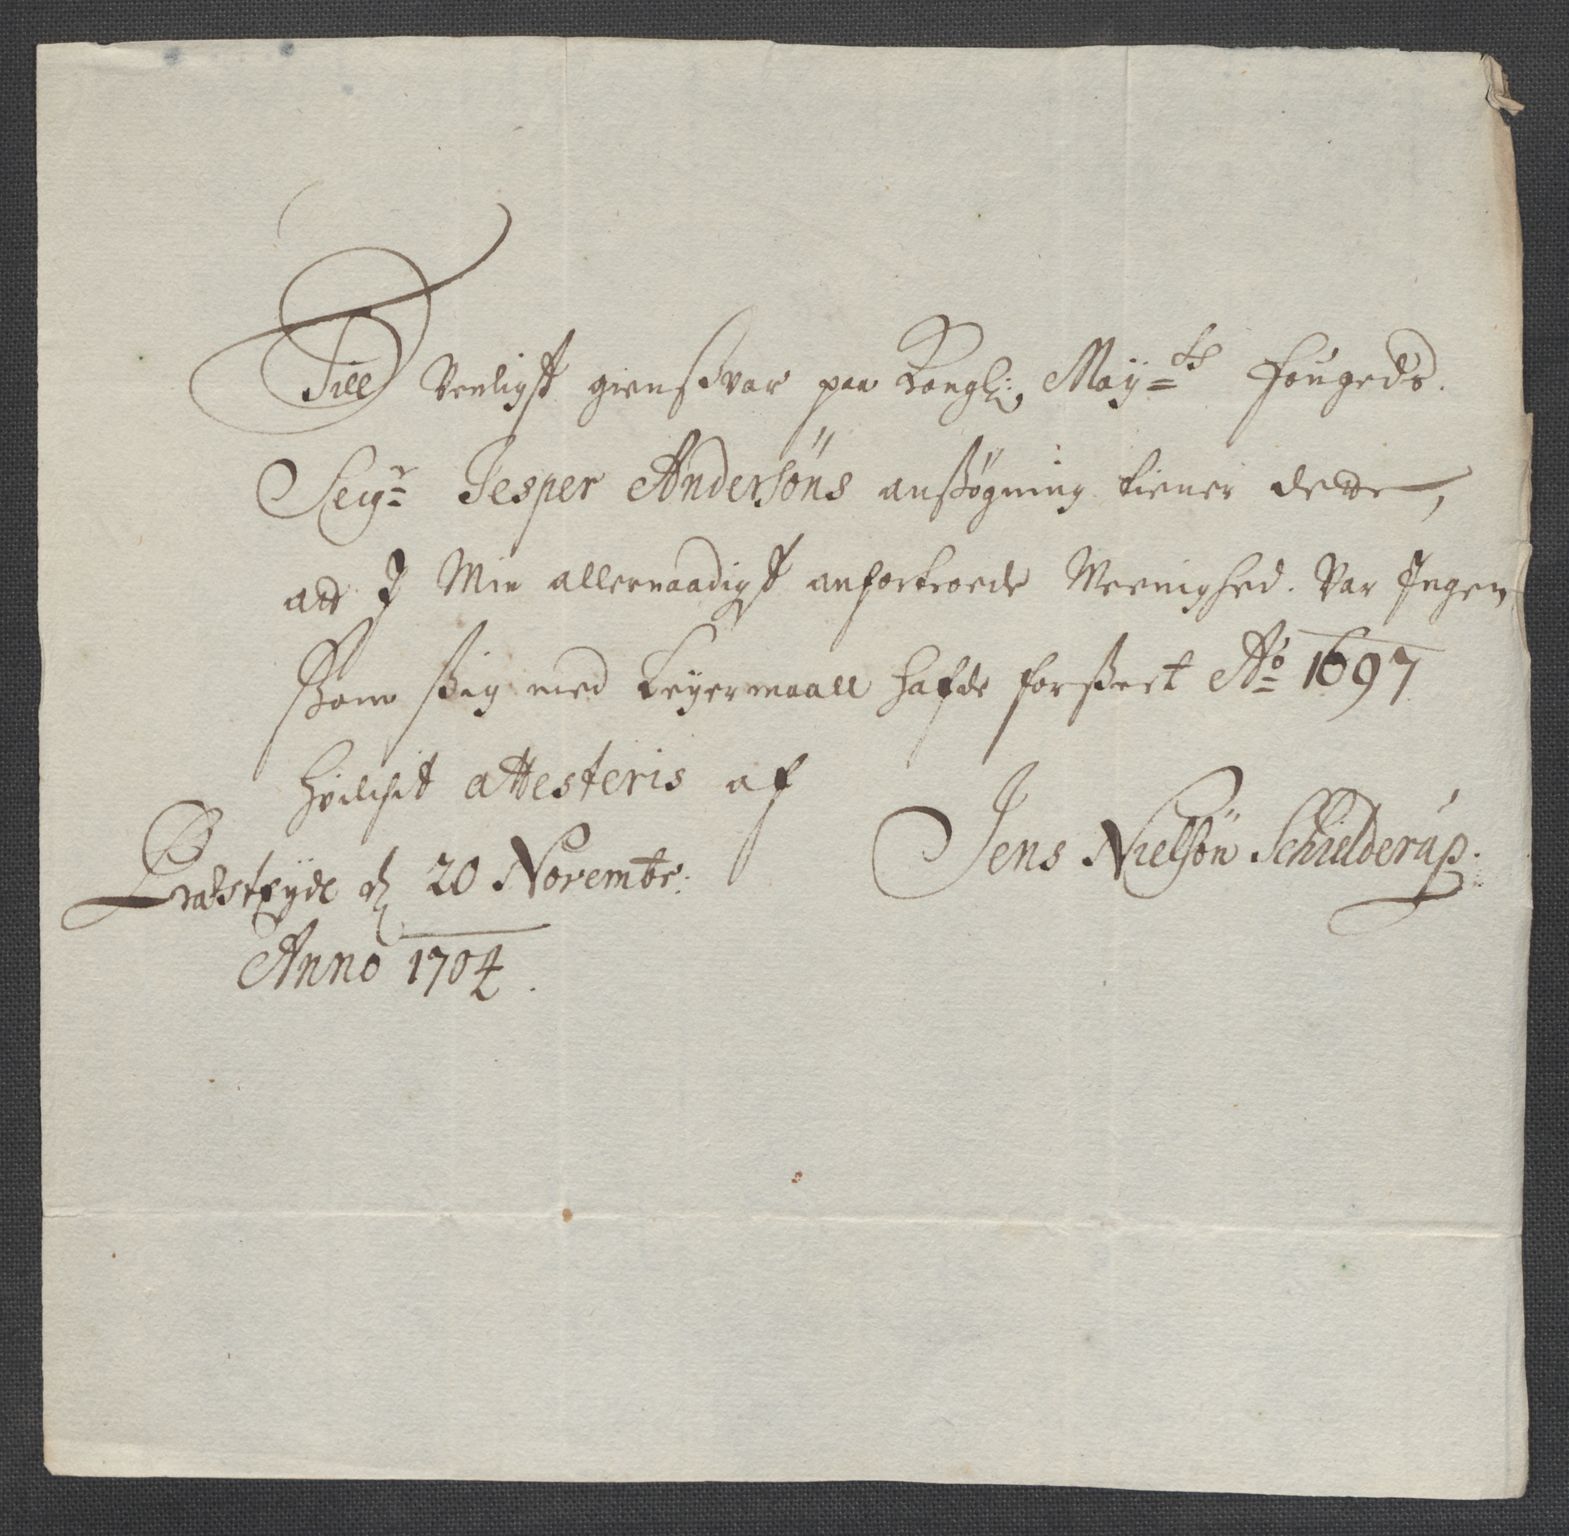 Till Venligst giensvar paa Kongl: Maÿ=ts fougeds.
Seig=r Jesper Andersöns anßøgning tiener dette,
att J Min allernaadigst anfortroede Meenighed. Var Jngen
ßom ßig med Leÿermaall hafde forßeet Ao= 1697
hvilchit attesteris af
Jens Nielßön Schielderúp.
d 20 Novembr:
Anno 1704.